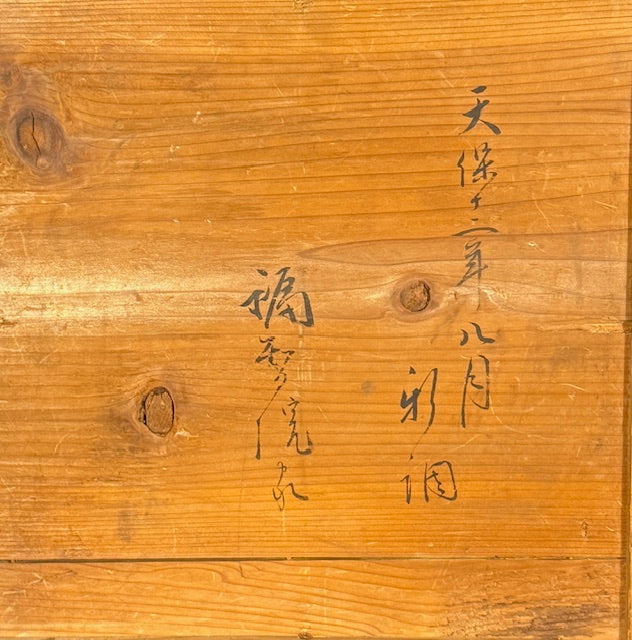 天保十二年八月
新調
福智院家